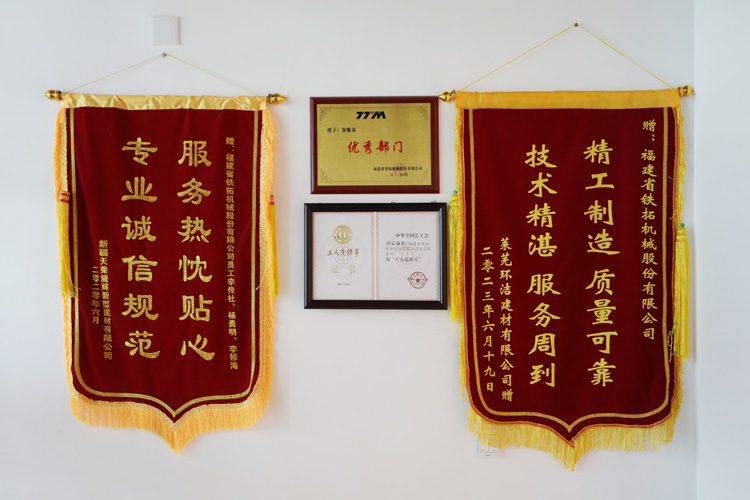 赠：福建省铁拓机械股份有限公司员工李传社、杨勇明、李修海
服务热忱贴心
专业诚信规范
新疆天莱隆辉新型建材有限公司
二零二零年六月
TTM
授予：客服部
优秀部门
福建省铁拓机械股份有限公司
工人先锋号
证书
中华全国总工会
为“工人先锋号”
赠：福建省铁拓机械股份有限公司
精工制造 质量可靠
技术精湛 服务周到
莱芜环洁建材有限公司赠
二零二三年六月十九日